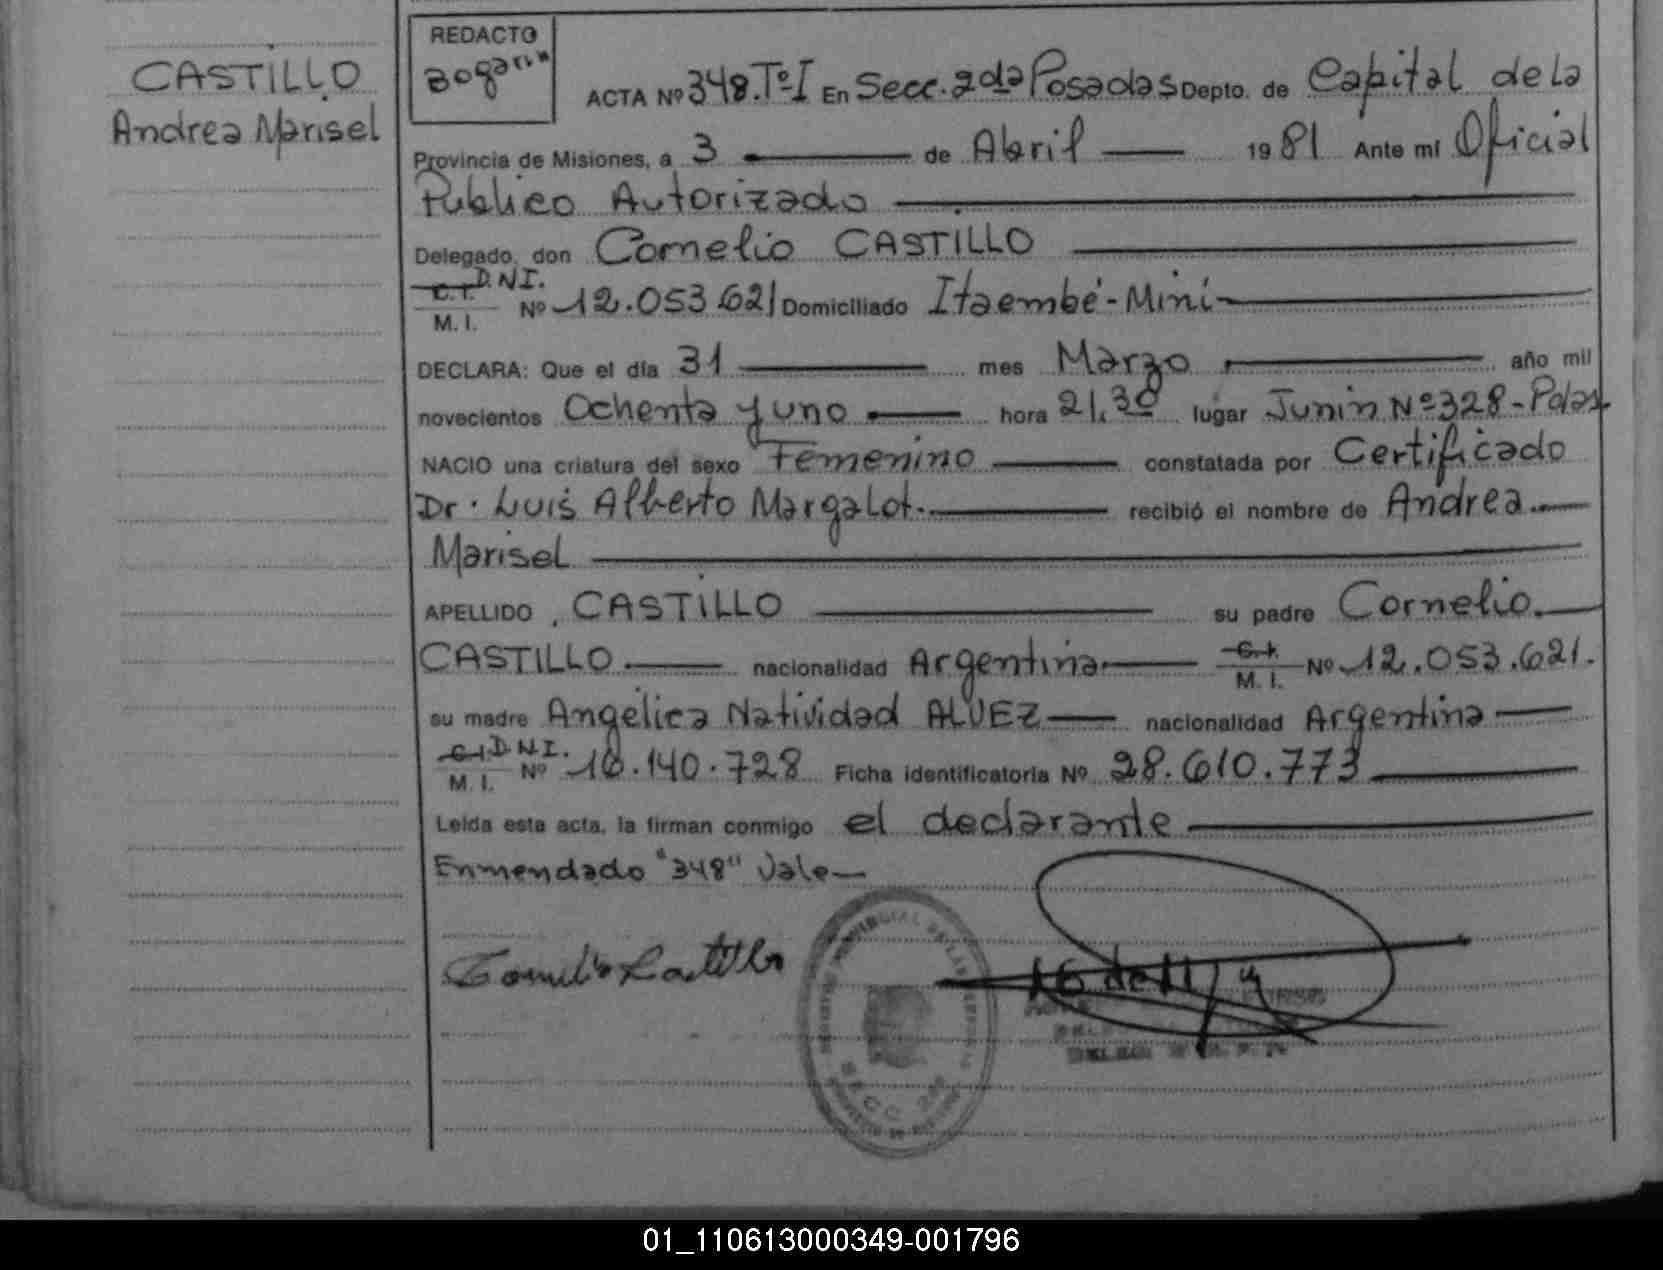 CASTILLO
Andrea Marisel
REDACTO
ACTA Nº 348. Tº I En Secc. 2da Posadas Depto. de Capital de la
Provincia de Misiones, a 3 de Abril 1981 Ante mi Oficial
Publico Autorizado
Delegado, don Cornelio CASTILLO
C.I. D.N.I.
M. I. Nº 12.053.621 Domiciliado Itaembé-Mini
DECLARA: Que el día 31 mes Marzo año mil
novecientos Ochenta y uno hora 21.30 lugar Junin Nº 328-Pdas
NACIO una criatura del sexo Femenino constatada por Certificado
Dr. Luis Alberto Margalot. recibió el nombre de Andrea
Marisel
APELLIDO, CASTILLO su padre Cornelio
CASTILLO. nacionalidad Argentina C.I. M. I. Nº 12.053.621.
su madre Angélica Natividad ALVEZ nacionalidad Argentina
C.I. D.N.I.
M. I. Nº 10.140.728 Ficha identificatoria Nº 28.610.773
Leída esta acta, la firman conmigo el declarante
Enmendado "348" Vale
Cornelio Castillo
01_110613000349-001796